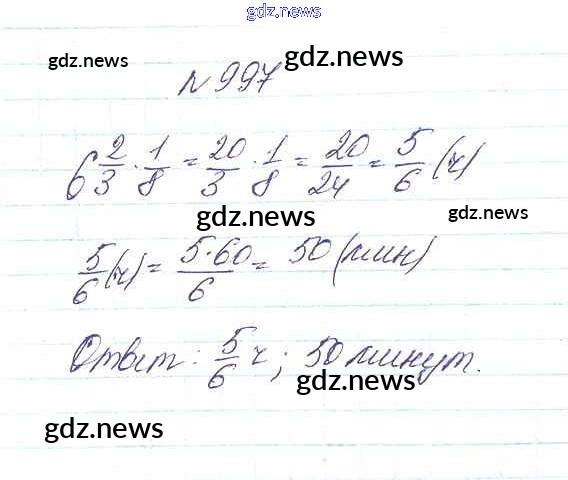 gdz.news
gdz.news gdz.news
№997
6 2/3 · 1/8 = 20/3 · 1/8 = 20/24 = 5/6 (ч)
gdz.news gdz.news
5/6 (ч) = 5·60/6 = 50 (мин)
Ответ: 5/6 ч; 50 минут.
gdz.news
gdz.news
gdz.news